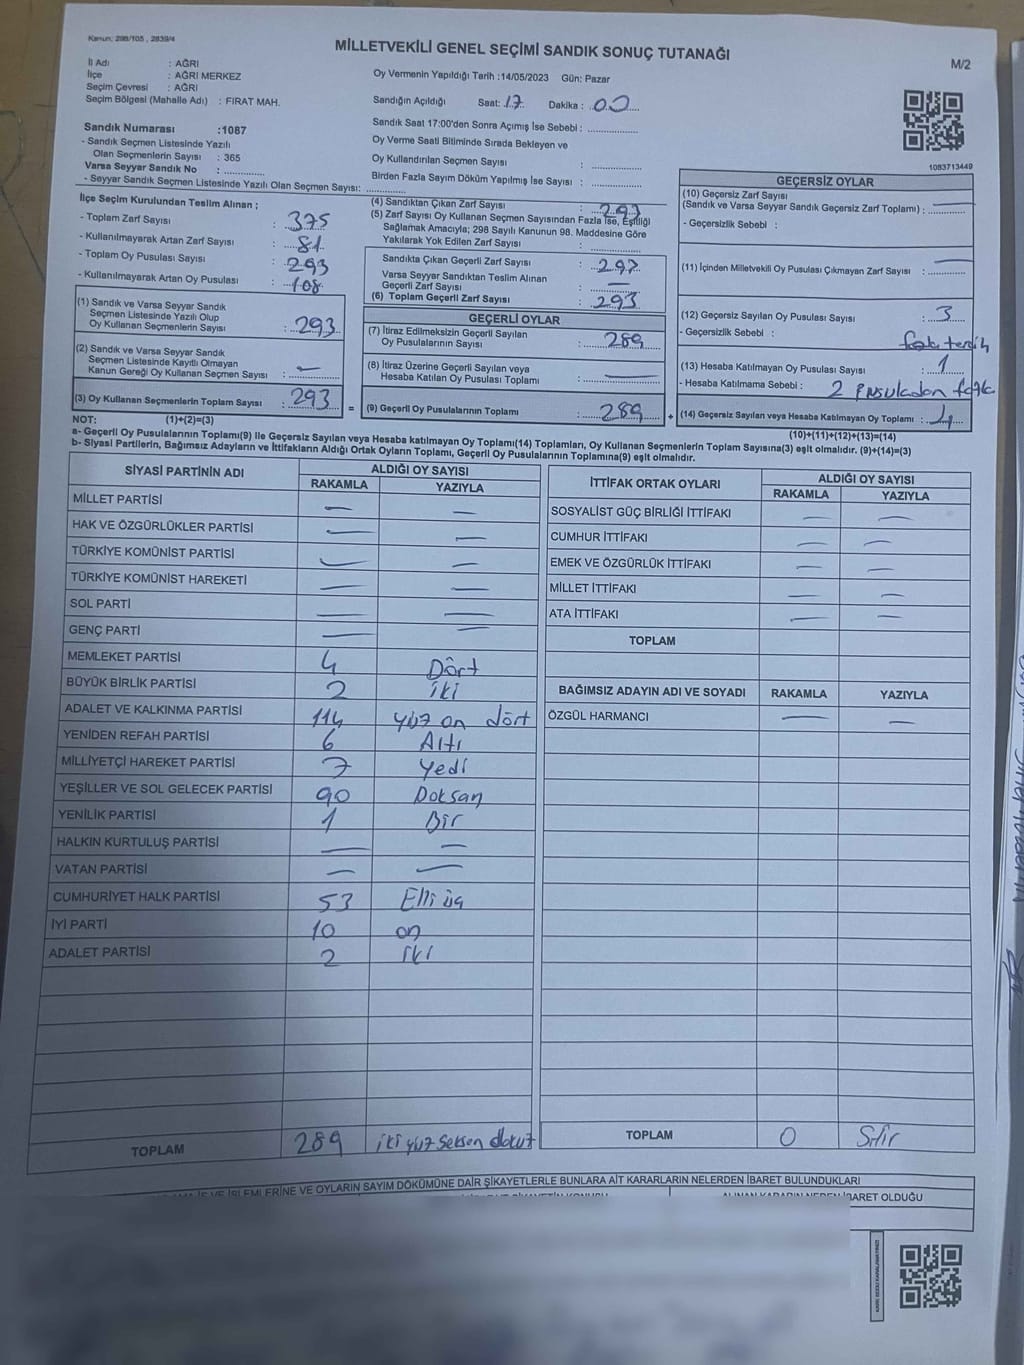 Kanun: 298/105 , 2839/4
MİLLETVEKİLİ GENEL SEÇİMİ SANDIK SONUÇ TUTANAĞI
M/2
İl Adı : AĞRI
İlçe : AĞRI MERKEZ
Seçim Çevresi : AĞRI
Seçim Bölgesi (Mahalle Adı) : FIRAT MAH.
Sandık Numarası :1087
- Sandık Seçmen Listesinde Yazılı
Olan Seçmenlerin Sayısı : 365
Varsa Seyyar Sandık No :
- Seyyar Sandık Seçmen Listesinde Yazılı Olan Seçmen Sayısı:
Oy Vermenin Yapıldığı Tarih :14/05/2023 Gün: Pazar
Sandığın Açıldığı Saat: 17 Dakika : 00
Sandık Saat 17:00'den Sonra Açımış İse Sebebi :
Oy Verme Saati Bitiminde Sırada Bekleyen ve
Oy Kullandırılan Seçmen Sayısı :
Birden Fazla Sayım Döküm Yapılmış İse Sayısı :
1083713449
İlçe Seçim Kurulundan Teslim Alınan ;
- Toplam Zarf Sayısı : 375
- Kullanılmayarak Artan Zarf Sayısı : 81
- Toplam Oy Pusulası Sayısı : 293
- Kullanılmayarak Artan Oy Pusulası : 108
(1) Sandık ve Varsa Seyyar Sandık
Seçmen Listesinde Yazılı Olup
Oy Kullanan Seçmenlerin Sayısı : 293
(2) Sandık ve Varsa Seyyar Sandık
Seçmen Listesinde Kayıtlı Olmayan
Kanun Gereği Oy Kullanan Seçmen Sayısı : —
(3) Oy Kullanan Seçmenlerin Toplam Sayısı : 293
(4) Sandıktan Çıkan Zarf Sayısı : 293
(5) Zarf Sayısı Oy Kullanan Seçmen Sayısından Fazla İse, Eşitliği
Sağlamak Amacıyla; 298 Sayılı Kanunun 98. Maddesine Göre
Yakılarak Yok Edilen Zarf Sayısı :
Sandıkta Çıkan Geçerli Zarf Sayısı : 293
Varsa Seyyar Sandıktan Teslim Alınan
Geçerli Zarf Sayısı : —
(6) Toplam Geçerli Zarf Sayısı : 293
GEÇERLİ OYLAR
(7) İtiraz Edilmeksizin Geçerli Sayılan
Oy Pusulalarının Sayısı : 289
(8) İtiraz Üzerine Geçerli Sayılan veya
Hesaba Katılan Oy Pusulası Toplamı : —
= (9) Geçerli Oy Pusulalarının Toplamı : 289 +
GEÇERSİZ OYLAR
(10) Geçersiz Zarf Sayısı
(Sandık ve Varsa Seyyar Sandık Geçersiz Zarf Toplamı) : —
- Geçersizlik Sebebi :
(11) İçinden Milletvekili Oy Pusulası Çıkmayan Zarf Sayısı : —
(12) Geçersiz Sayılan Oy Pusulası Sayısı : 3
- Geçersizlik Sebebi : tercih
(13) Hesaba Katılmayan Oy Pusulası Sayısı : 1
- Hesaba Katılmama Sebebi : 2 pusuladan fazla
(14) Geçersiz Sayılan veya Hesaba Katılmayan Oy Toplamı : 4
NOT: (1)+(2)=(3)
(10)+(11)+(12)+(13)=(14)
a- Geçerli Oy Pusulalarının Toplamı(9) ile Geçersiz Sayılan veya Hesaba katılmayan Oy Toplamı(14) Toplamları, Oy Kullanan Seçmenlerin Toplam Sayısına(3) eşit olmalıdır. (9)+(14)=(3)
b- Siyasi Partilerin, Bağımsız Adayların ve İttifakların Aldığı Ortak Oyların Toplamı, Geçerli Oy Pusulalarının Toplamına(9) eşit olmalıdır.
SİYASİ PARTİNİN ADI ALDIĞI OY SAYISI
RAKAMLA YAZIYLA
MİLLET PARTİSİ — —
HAK VE ÖZGÜRLÜKLER PARTİSİ — —
TÜRKİYE KOMÜNİST PARTİSİ — —
TÜRKİYE KOMÜNİST HAREKETİ — —
SOL PARTİ — —
GENÇ PARTİ — —
MEMLEKET PARTİSİ 4 Dört
BÜYÜK BİRLİK PARTİSİ 2 iki
ADALET VE KALKINMA PARTİSİ 114 yüz on dört
YENİDEN REFAH PARTİSİ 6 Altı
MİLLİYETÇİ HAREKET PARTİSİ 7 yedi
YEŞİLLER VE SOL GELECEK PARTİSİ 90 Doksan
YENİLİK PARTİSİ 1 Bir
HALKIN KURTULUŞ PARTİSİ — —
VATAN PARTİSİ — —
CUMHURİYET HALK PARTİSİ 53 Elli üç
İYİ PARTİ 10 on
ADALET PARTİSİ 2 iki
TOPLAM 289 iki yüz seksen dokuz
İTTİFAK ORTAK OYLARI ALDIĞI OY SAYISI
RAKAMLA YAZIYLA
SOSYALİST GÜÇ BİRLİĞİ İTTİFAKI — —
CUMHUR İTTİFAKI — —
EMEK VE ÖZGÜRLÜK İTTİFAKI — —
MİLLET İTTİFAKI — —
ATA İTTİFAKI — —
TOPLAM
BAĞIMSIZ ADAYIN ADI VE SOYADI RAKAMLA YAZIYLA
ÖZGÜL HARMANCI — —
TOPLAM 0 Sıfır
İŞLEMLERİNE VE OYLARIN SAYIM DÖKÜMÜNE DAİR ŞİKAYETLERLE BUNLARA AİT KARARLARIN NELERDEN İBARET BULUNDUKLARI
ALINAN KARARIN NEDEN İBARET OLDUĞU